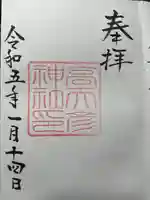 奉拝
高彦
神社印
令和五年一月十四日